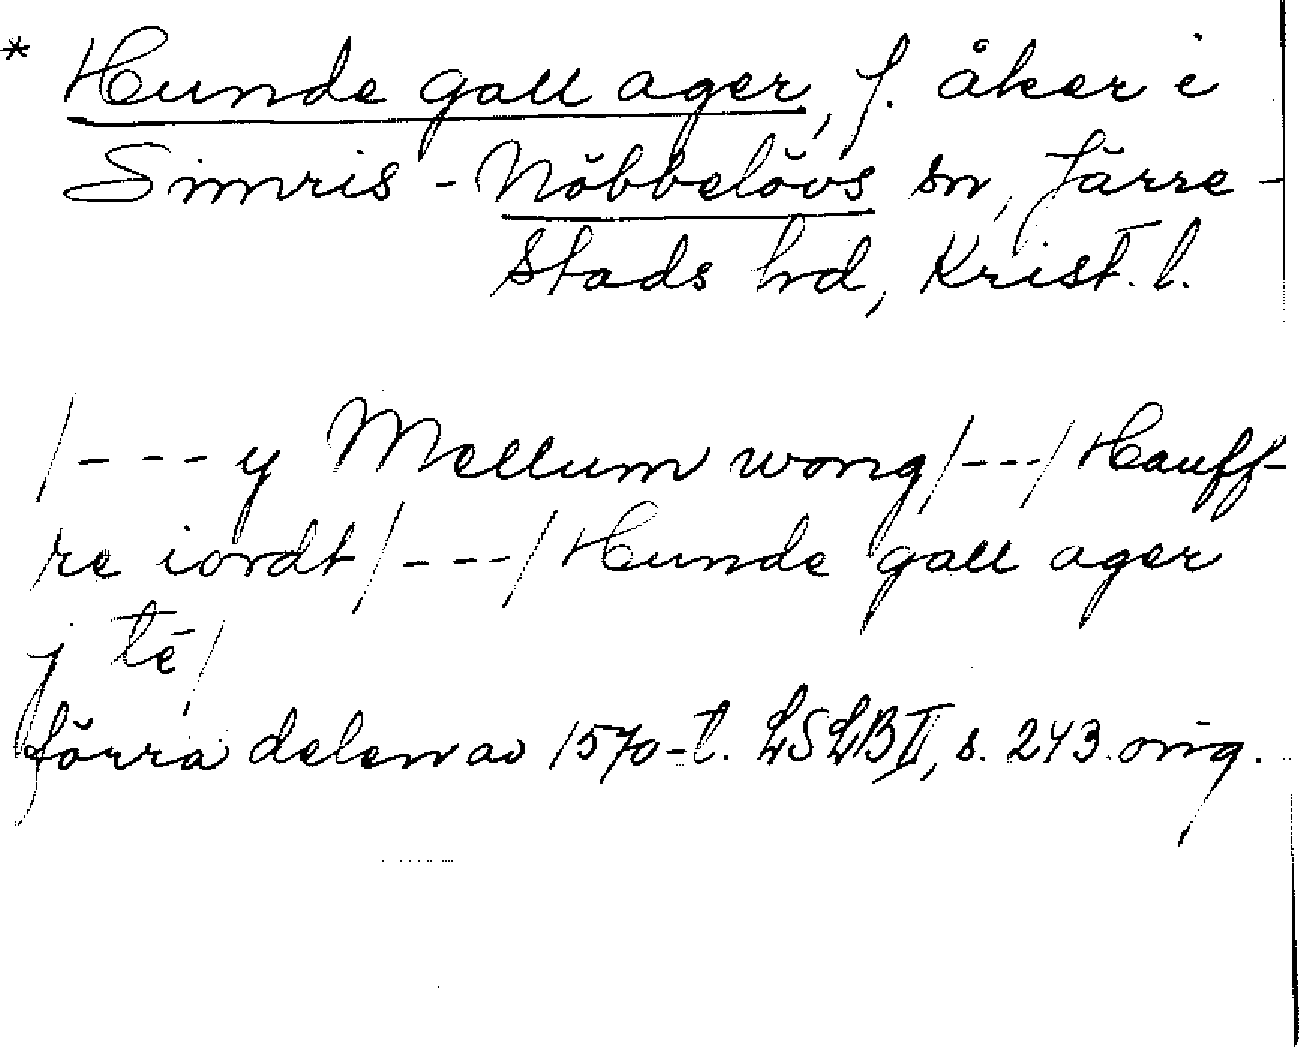 * Hunde gall ager, f. åker i
Simris - Nöbbelövs sn, Järre-
stads hd, Krist. l.
/--- y Mellum wong/---/ Hauff-
re iordt/---/ Hunde gall ager
j té/
förra delen av 1570-t. LSLB II, s. 243 orig.